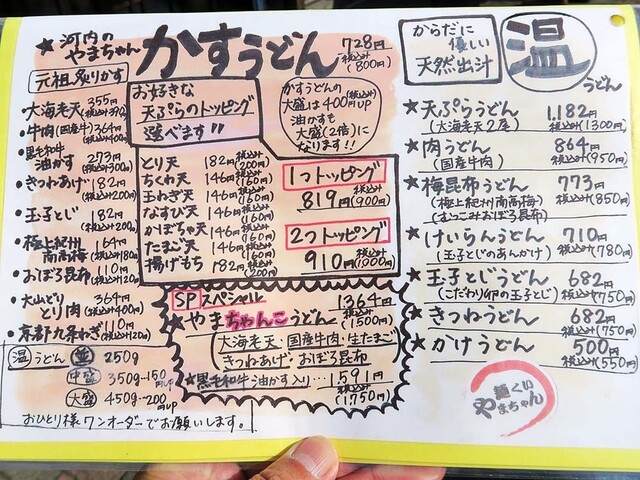 ★河内の
やまちゃん
かすうどん
728円
(税込み800円)
元祖炙りかす
・大海老天 355円
・牛肉(国産牛) 364円
・黒毛和牛
油かす 273円
(税込み300円)
・きつねあげ 182円
(税込み200円)
・玉子とじ 182円
(税込み200円)
・極上紀州
南高梅 164円
(税込み180円)
・おぼろ昆布 110円
・大山どり
とり肉 364円
(税込み400円)
・京都九条ねぎ 110円
温うどん 並 250g
中盛 350g-150円UP
大盛 450g-200円UP
おひとり様ワンオーダーでお願いします。
お好きな
天ぷらのトッピング
選べます!!
かすうどんの(税込み)
大盛は400円UP
油かすも
大盛(2倍)に
なります!!
とり天 182円 税込み(200円)
ちくわ天 146円 税込み(160円)
玉ねぎ天 146円 税込み(160円)
なすび天 146円 税込み(160円)
かぼちゃ天 146円 税込み(160円)
たまご天 146円 税込み(160円)
揚げもち 182円 税込み(200円)
1つトッピング
819円 税込み(900円)
2つトッピング
910円 税込み(1,000円)
SPスペシャル
★やまちゃんこうどん
1364円
税込み(1500円)
大海老天・国産牛肉・生たまご
きつねあげ・おぼろ昆布
★黒毛和牛油かす入り…1,591円
税込み(1,750円)
からだに
優しい
天然出汁
温
うどん
★天ぷらうどん 1,182円
(大海老天2尾) 税込み(1300円)
★肉うどん 864円
(国産牛肉) 税込み(950円)
★梅昆布うどん 773円
(極上紀州南高梅) 税込み(850円)
(むつこみおぼろ昆布)
★けいらんうどん 710円
(玉子とじのあんかけ) 税込み(780円)
★玉子とじうどん 682円
(こだわり卵の玉子とじ) 税込み(750円)
★きつねうどん 682円
税込み(750円)
★かけうどん 500円
税込み(550円)
麺くい
やまちゃん